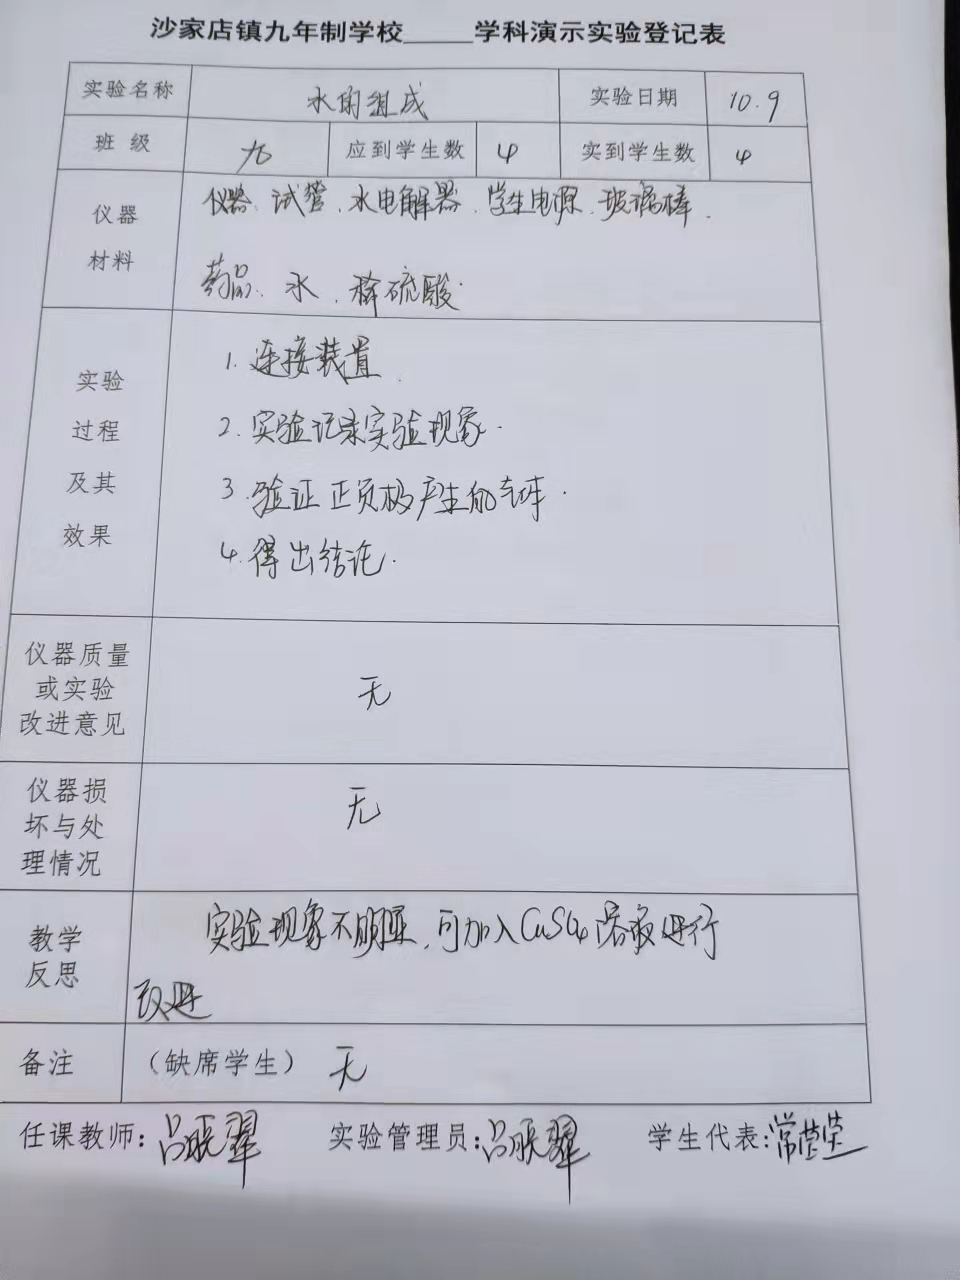 沙家店镇九年制学校_____学科演示实验登记表
实验名称 水的组成 实验日期 10.9
班 级 九 应到学生数 4 实到学生数 4
仪器
材料
仪器、试管、水电解器、学生电源、玻璃棒.
药品、水、稀硫酸.
实验
过程
及其
效果
1. 连接装置.
2. 实验记录实验现象.
3. 验证正负极产生的气体.
4. 得出结论.
仪器质量
或实验
改进意见
无
仪器损
坏与处
理情况
无
教学
反思
实验现象不明显,可加入CuSO4溶液进行
改进
备注 （缺席学生） 无
任课教师: 实验管理员: 学生代表: